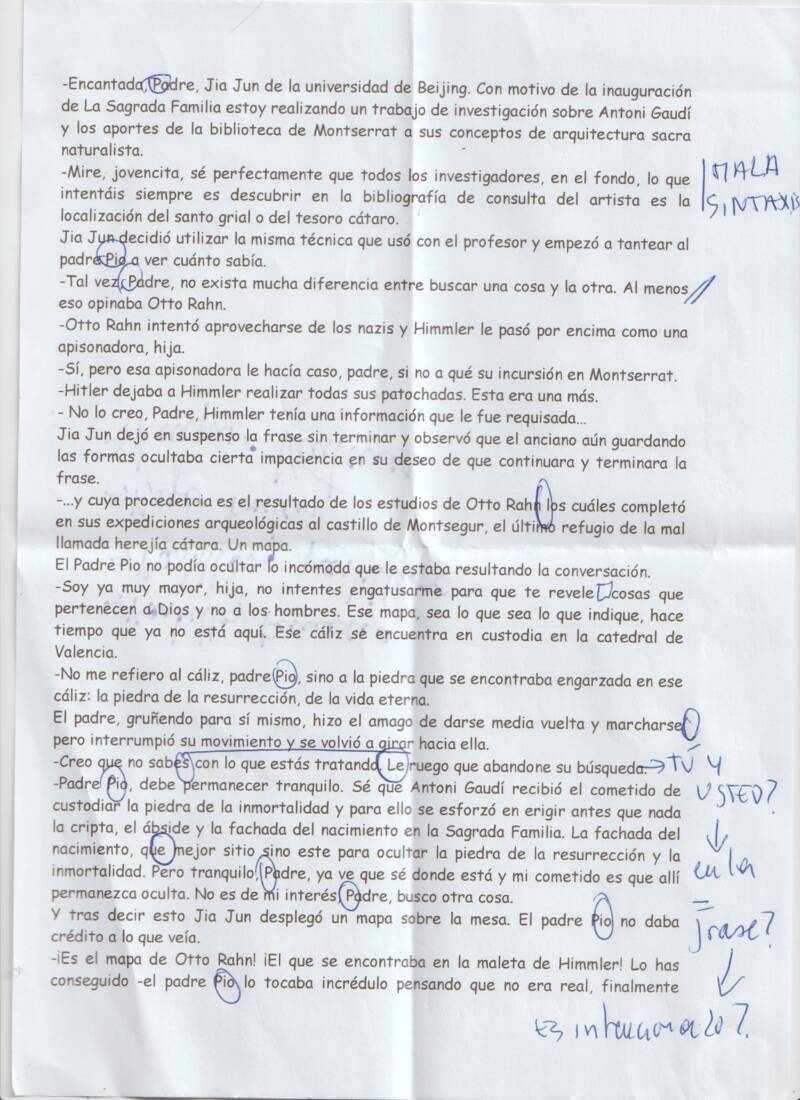 -Encantada, Padre, Jia Jun de la universidad de Beijing. Con motivo de la inauguración
de La Sagrada Familia estoy realizando un trabajo de investigación sobre Antoni Gaudí
y los aportes de la biblioteca de Montserrat a sus conceptos de arquitectura sacra
naturalista.
-Mire, jovencita, sé perfectamente que todos los investigadores, en el fondo, lo que
intentáis siempre es descubrir en la bibliografía de consulta del artista es la
localización del santo grial o del tesoro cátaro.
MALA
SINTAXIS
Jia Jun decidió utilizar la misma técnica que usó con el profesor y empezó a tantear al
padre Pio a ver cuánto sabía.
-Tal vez, Padre, no exista mucha diferencia entre buscar una cosa y la otra. Al menos
eso opinaba Otto Rahn.
-Otto Rahn intentó aprovecharse de los nazis y Himmler le pasó por encima como una
apisonadora, hija.
-Sí, pero esa apisonadora le hacía caso, padre, si no a qué su incursión en Montserrat.
-Hitler dejaba a Himmler realizar todas sus patochadas. Esta era una más.
- No lo creo, Padre, Himmler tenía una información que le fue requisada...
Jia Jun dejó en suspenso la frase sin terminar y observó que el anciano aún guardando
las formas ocultaba cierta impaciencia en su deseo de que continuara y terminara la
frase.
-...y cuya procedencia es el resultado de los estudios de Otto Rahn los cuáles completó
en sus expediciones arqueológicas al castillo de Montsegur, el último refugio de la mal
llamada herejía cátara. Un mapa.
El Padre Pio no podía ocultar lo incómoda que le estaba resultando la conversación.
-Soy ya muy mayor, hija, no intentes engatusarme para que te revele cosas que
pertenecen a Dios y no a los hombres. Ese mapa, sea lo que sea lo que indique, hace
tiempo que ya no está aquí. Ese cáliz se encuentra en custodia en la catedral de
Valencia.
-No me refiero al cáliz, padre Pio, sino a la piedra que se encontraba engarzada en ese
cáliz: la piedra de la resurrección, de la vida eterna.
El padre, gruñendo para sí mismo, hizo el amago de darse media vuelta y marcharse
pero interrumpió su movimiento y se volvió a girar hacia ella.
-Creo que no sabes con lo que estás tratando. Le ruego que abandone su búsqueda.
-Padre Pio, debe permanecer tranquilo. Sé que Antoni Gaudí recibió el cometido de
custodiar la piedra de la inmortalidad y para ello se esforzó en erigir antes que nada
la cripta, el ábside y la fachada del nacimiento en la Sagrada Familia. La fachada del
nacimiento, que mejor sitio sino este para ocultar la piedra de la resurrección y la
inmortalidad. Pero tranquilo, Padre, ya ve que sé donde está y mi cometido es que allí
permanezca oculta. No es de mi interés, Padre, busco otra cosa.
Y tras decir esto Jia Jun desplegó un mapa sobre la mesa. El padre Pio no daba
crédito a lo que veía.
-¡Es el mapa de Otto Rahn! ¡El que se encontraba en la maleta de Himmler! Lo has
conseguido -el padre Pio lo tocaba incrédulo pensando que no era real, finalmente
→ TÚ Y
USTED?
en la
=
frase?
Es intencionado?